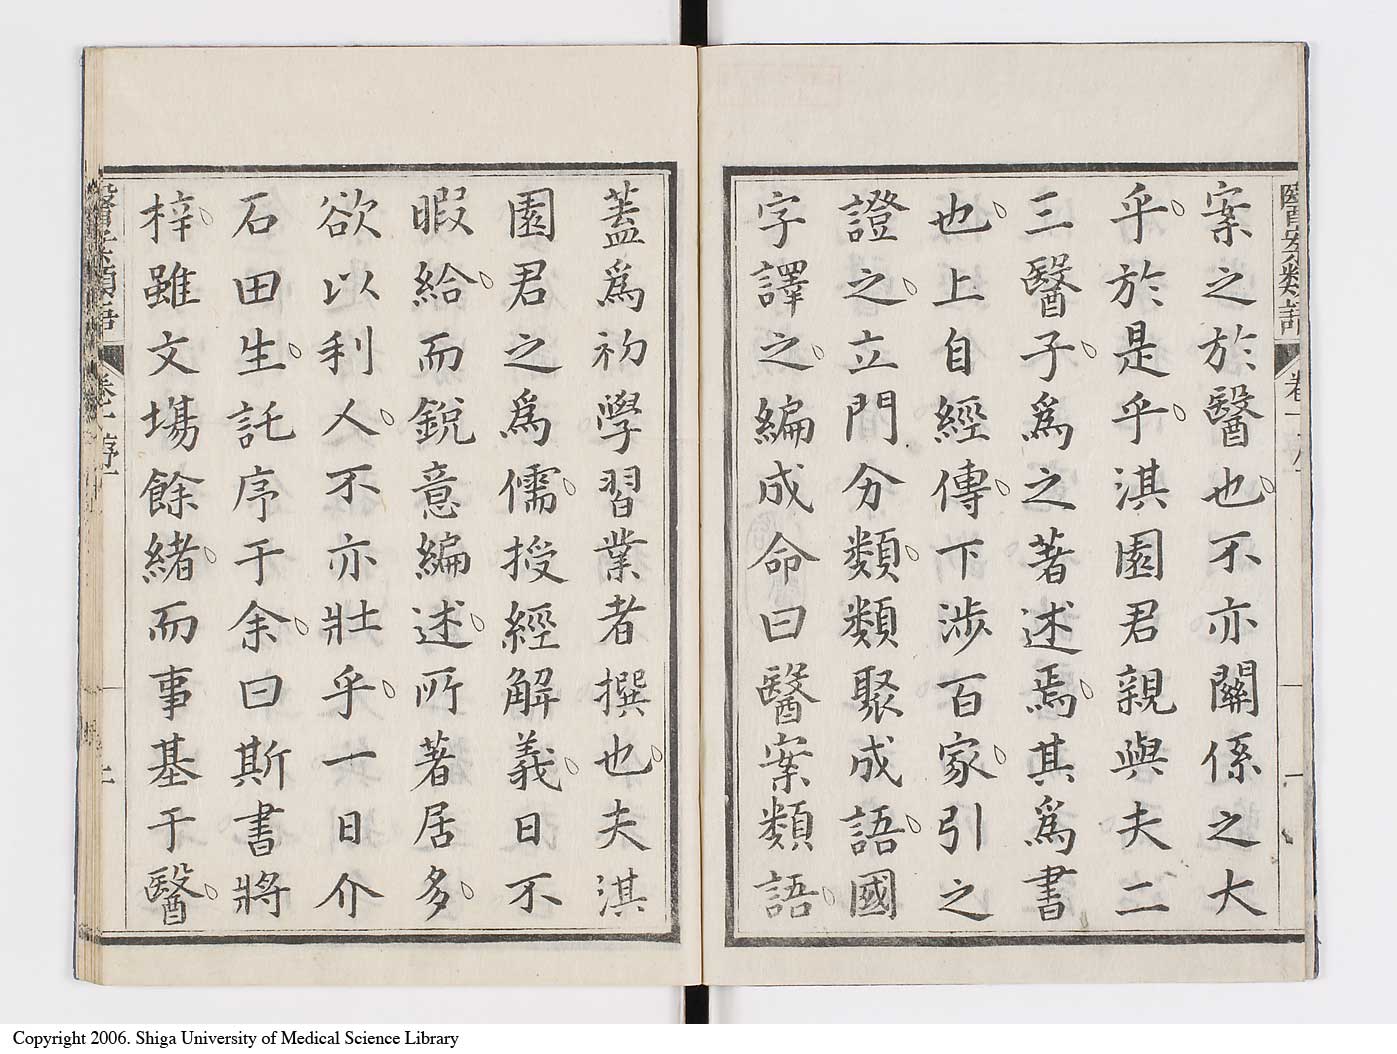 醫案類語
案之於醫也不亦關係之大
乎於是乎淇園君親與夫二
三醫子爲之著述焉其爲書
也上自經傳下涉百家引之
證之立門分類類聚成語國
字譯之編成命曰醫案類語
蓋爲初學習業者撰也夫淇
園君之爲儒授經解義日不
暇給而銳意編述所著居多
欲以利人不亦壯乎一日介
石田生託序于余曰斯書將
梓雖文塲餘緒而事基于醫
醫案類語
Copyright 2006. Shiga University of Medical Science Library